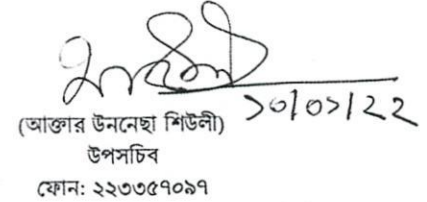 ১০/০১/২২
(আক্তার উননেছা শিউলী)
উপসচিব
ফোন: ২২৩৩৫৭০৯৭